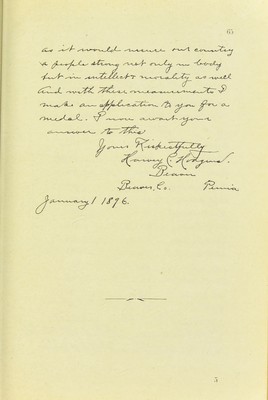 65
as it would insure our country
a people strong not only in body
but in intellect & morality as well
And with these measurements I
make an application to you for a
medal. I now await your
answer to this
Yours Respectfully
Harvey C. Hodgens.
Beaver
Beaver, Co. Penna
January 1 1896.
5